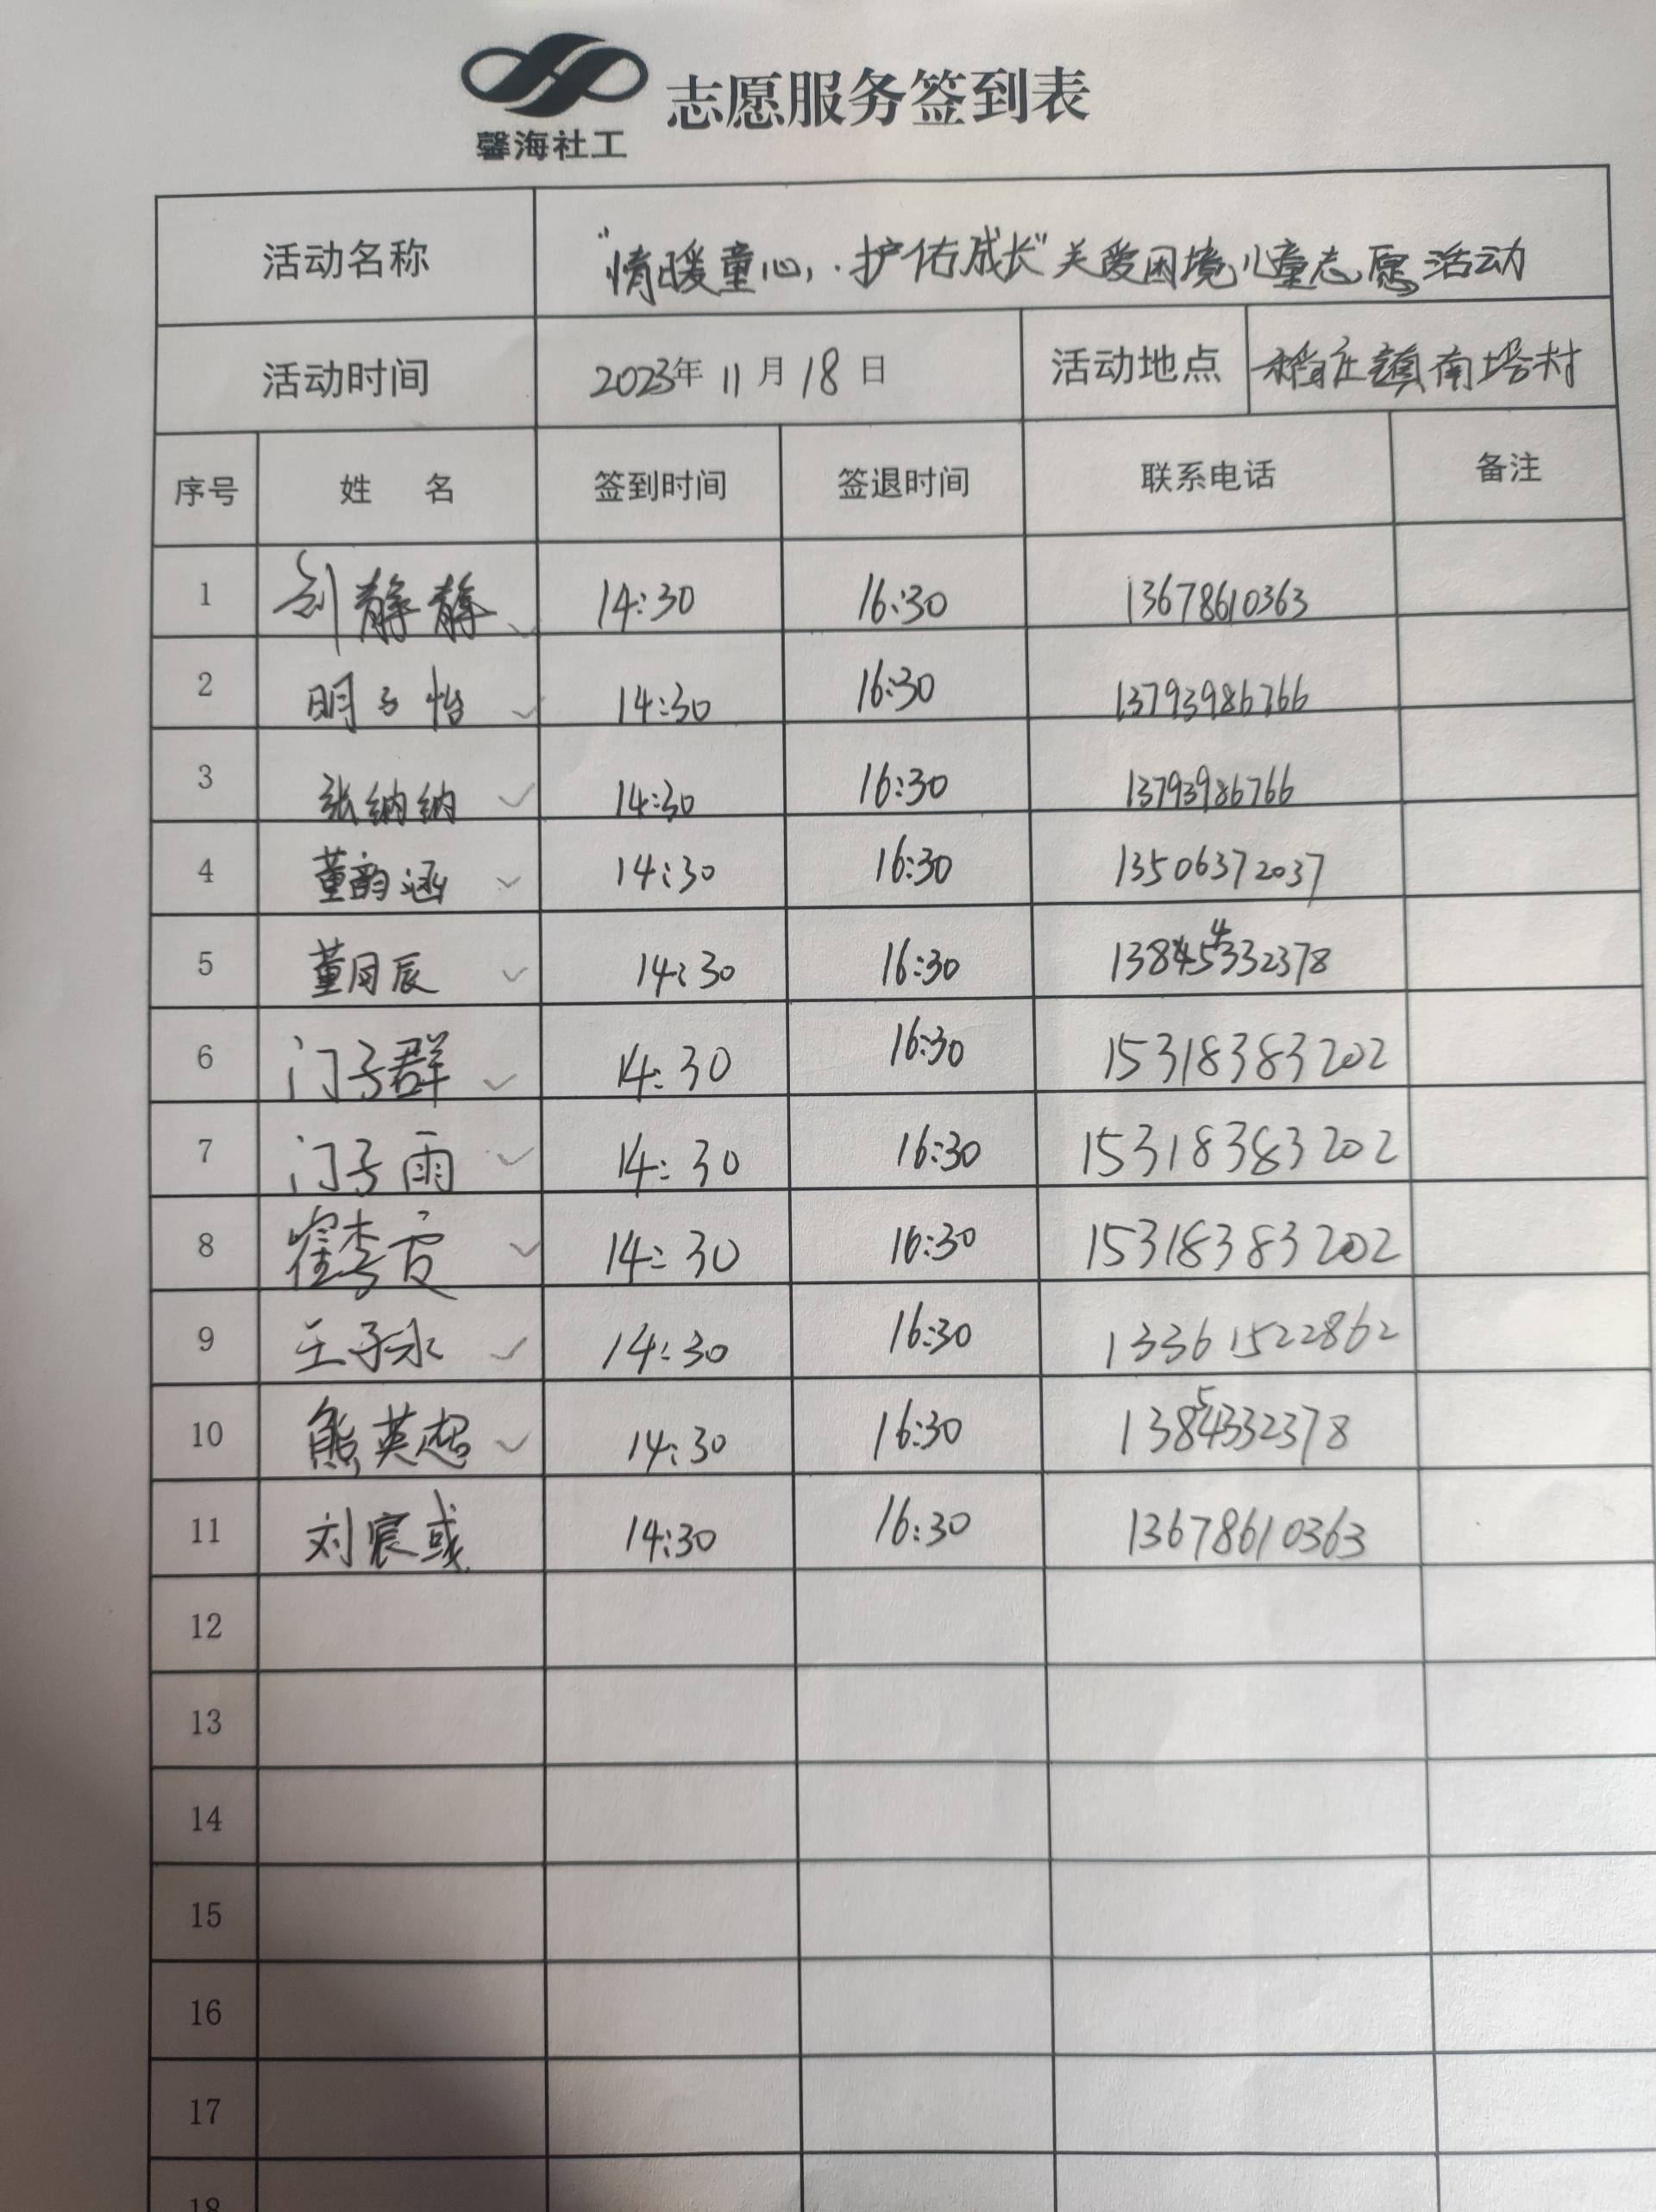 馨海社工
志愿服务签到表
活动名称 "情暖童心,护佑成长"关爱困境儿童志愿活动
活动时间 2023年 11月 18日 活动地点 稻庄镇南塔村
序号 姓 名 签到时间 签退时间 联系电话 备注
1 刘静静 14:30 16:30 13678610363
2 明子怡 14:30 16:30 13793986766
3 张纳纳 14:30 16:30 13793986766
4 董韵涵 14:30 16:30 13506372037
5 董同辰 14:30 16:30
6 门子群 14:30 16:30 15318383202
7 门子雨 14:30 16:30 15318383202
8 14:30 16:30 15318383202
9 王子永 14:30 16:30 13361522862
10 熊英超 14:30 16:30 13854332378
11 刘宸彧 14:30 16:30 13678610363
12
13
14
15
16
17
18